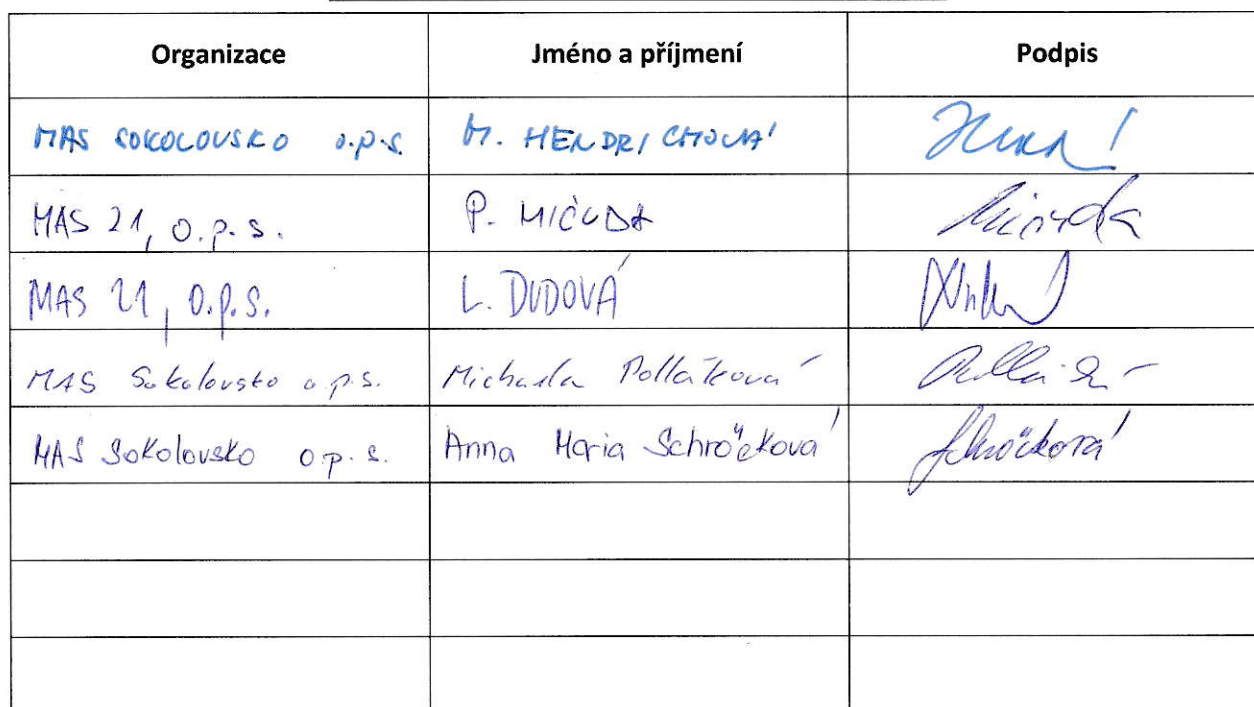 Organizace Jméno a příjmení Podpis
MAS SOKOLOVSKO o.p.s. M. HENDRICHOVÁ
MAS 21, o.p.s. P. MIČUDA Mičuda
MAS 21, O.P.S. L. DUDOVÁ
MAS Sokolovsko o.p.s. Michaela Polláková
MAS Sokolovsko o.p.s. Anna Maria Schröčková Schröčková